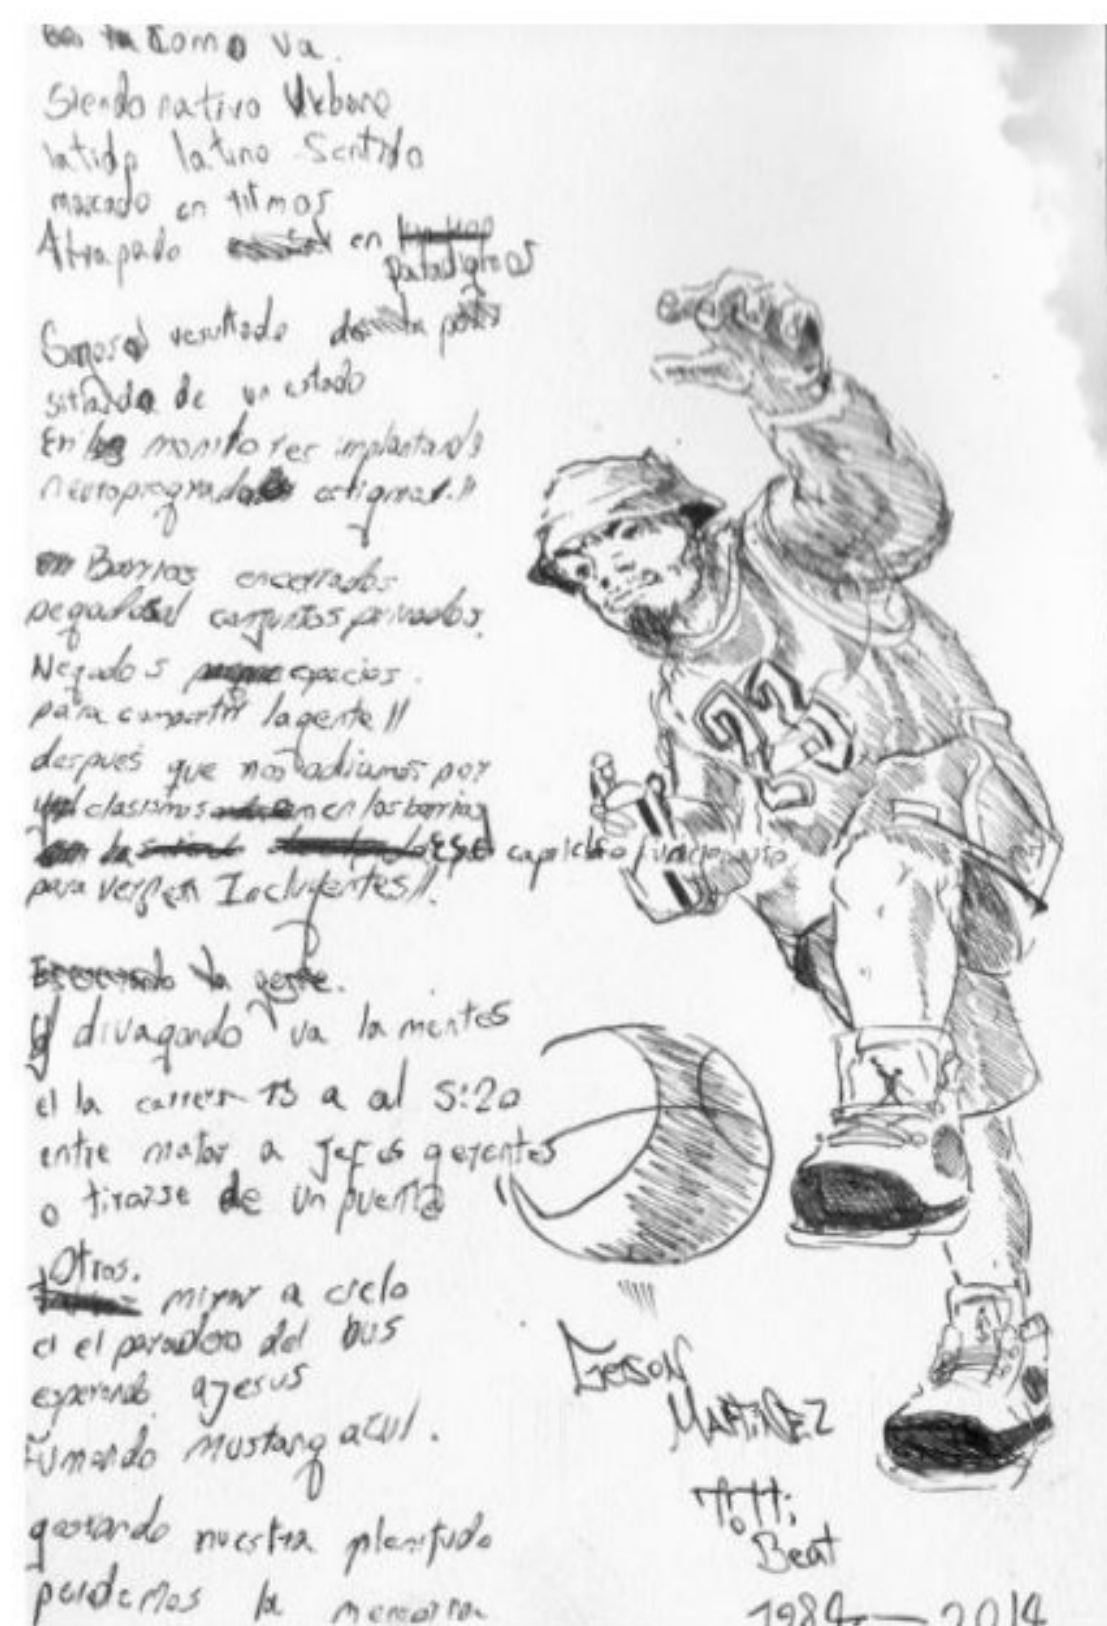 como va.
Siendo nativo Urbano
latido latino Sentido
marcado en ritmos
Atrapado en
paradigmas
Somos resultado
sitiado de un estado
En los monitores implantando
neuroprogramados estigmas.!!
Barrios encerrados
pegados al conjuntos privados.
Negados espacios.
para compartir la gente !!
despues que nos odiamos por
clasismos en los barrios
ESE capricho
para verse Incluyentes!!.
la gente.
y divagando va la mentes
el la carrera 13 a al 5:20
entre matar a Jefes gerentes
o tirarse de un puente
Otros.
mirar a cielo
el el paradero del bus
esperando a Jesus
Fumando Mustang azul.
nuestra plenitud
perdemos la memoria
23
GERSON
MARTINEZ
Totti
Beat
1984 — 2014